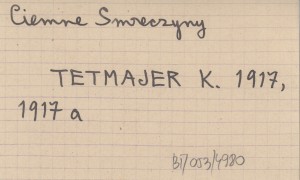 Ciemne Smreczyny
TETMAJER K. 1917,
1917 a
BI/053/4980